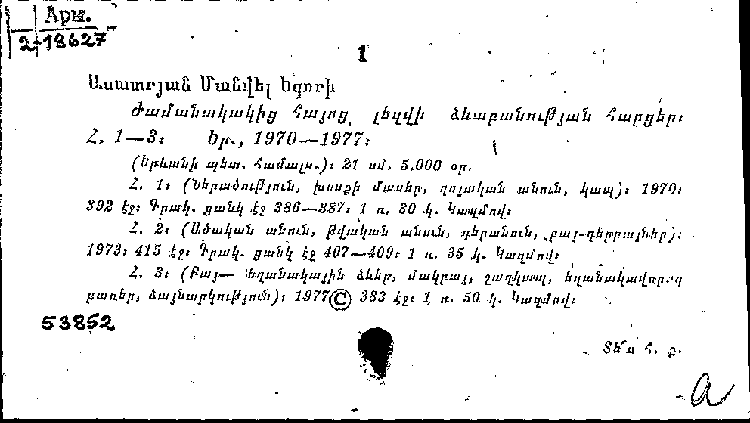 Арм.
2-18627
1
Ասատրյան Մանվել Եգորի
Ժամանակակից Հայոց լեզվի ձևաբանության Հարցեր։
Հ. 1—3։ Եր., 1970—1977։
(Երևանի պետ. Համալս.)։ 21 սմ. 5.000 օր.
Հ. 1։ (Ներածություն, խոսքի մասեր, գոյական անուն, կապ)։ 1970։
392 էջ։ Գրակ. ցանկ էջ 386—387։ 1 ռ. 30 կ. Կազմով։
Հ. 2։ (Ածական անուն, թվական անուն, դերանուն, բայ-դերբայներ)։
1973։ 415 էջ։ Գրակ. ցանկ էջ 407—409։ 1 ռ. 35 կ. Կազմով։
Հ. 3։ (Բայ— եղանակային ձևեր, մակբայ, շաղկապ, եղանակավորող
բառեր, ձայնարկություն)։ 1977 © 383 էջ։ 1 ռ. 50 կ. Կազմով։
53852
Տե՛ս Հ. ք.
a